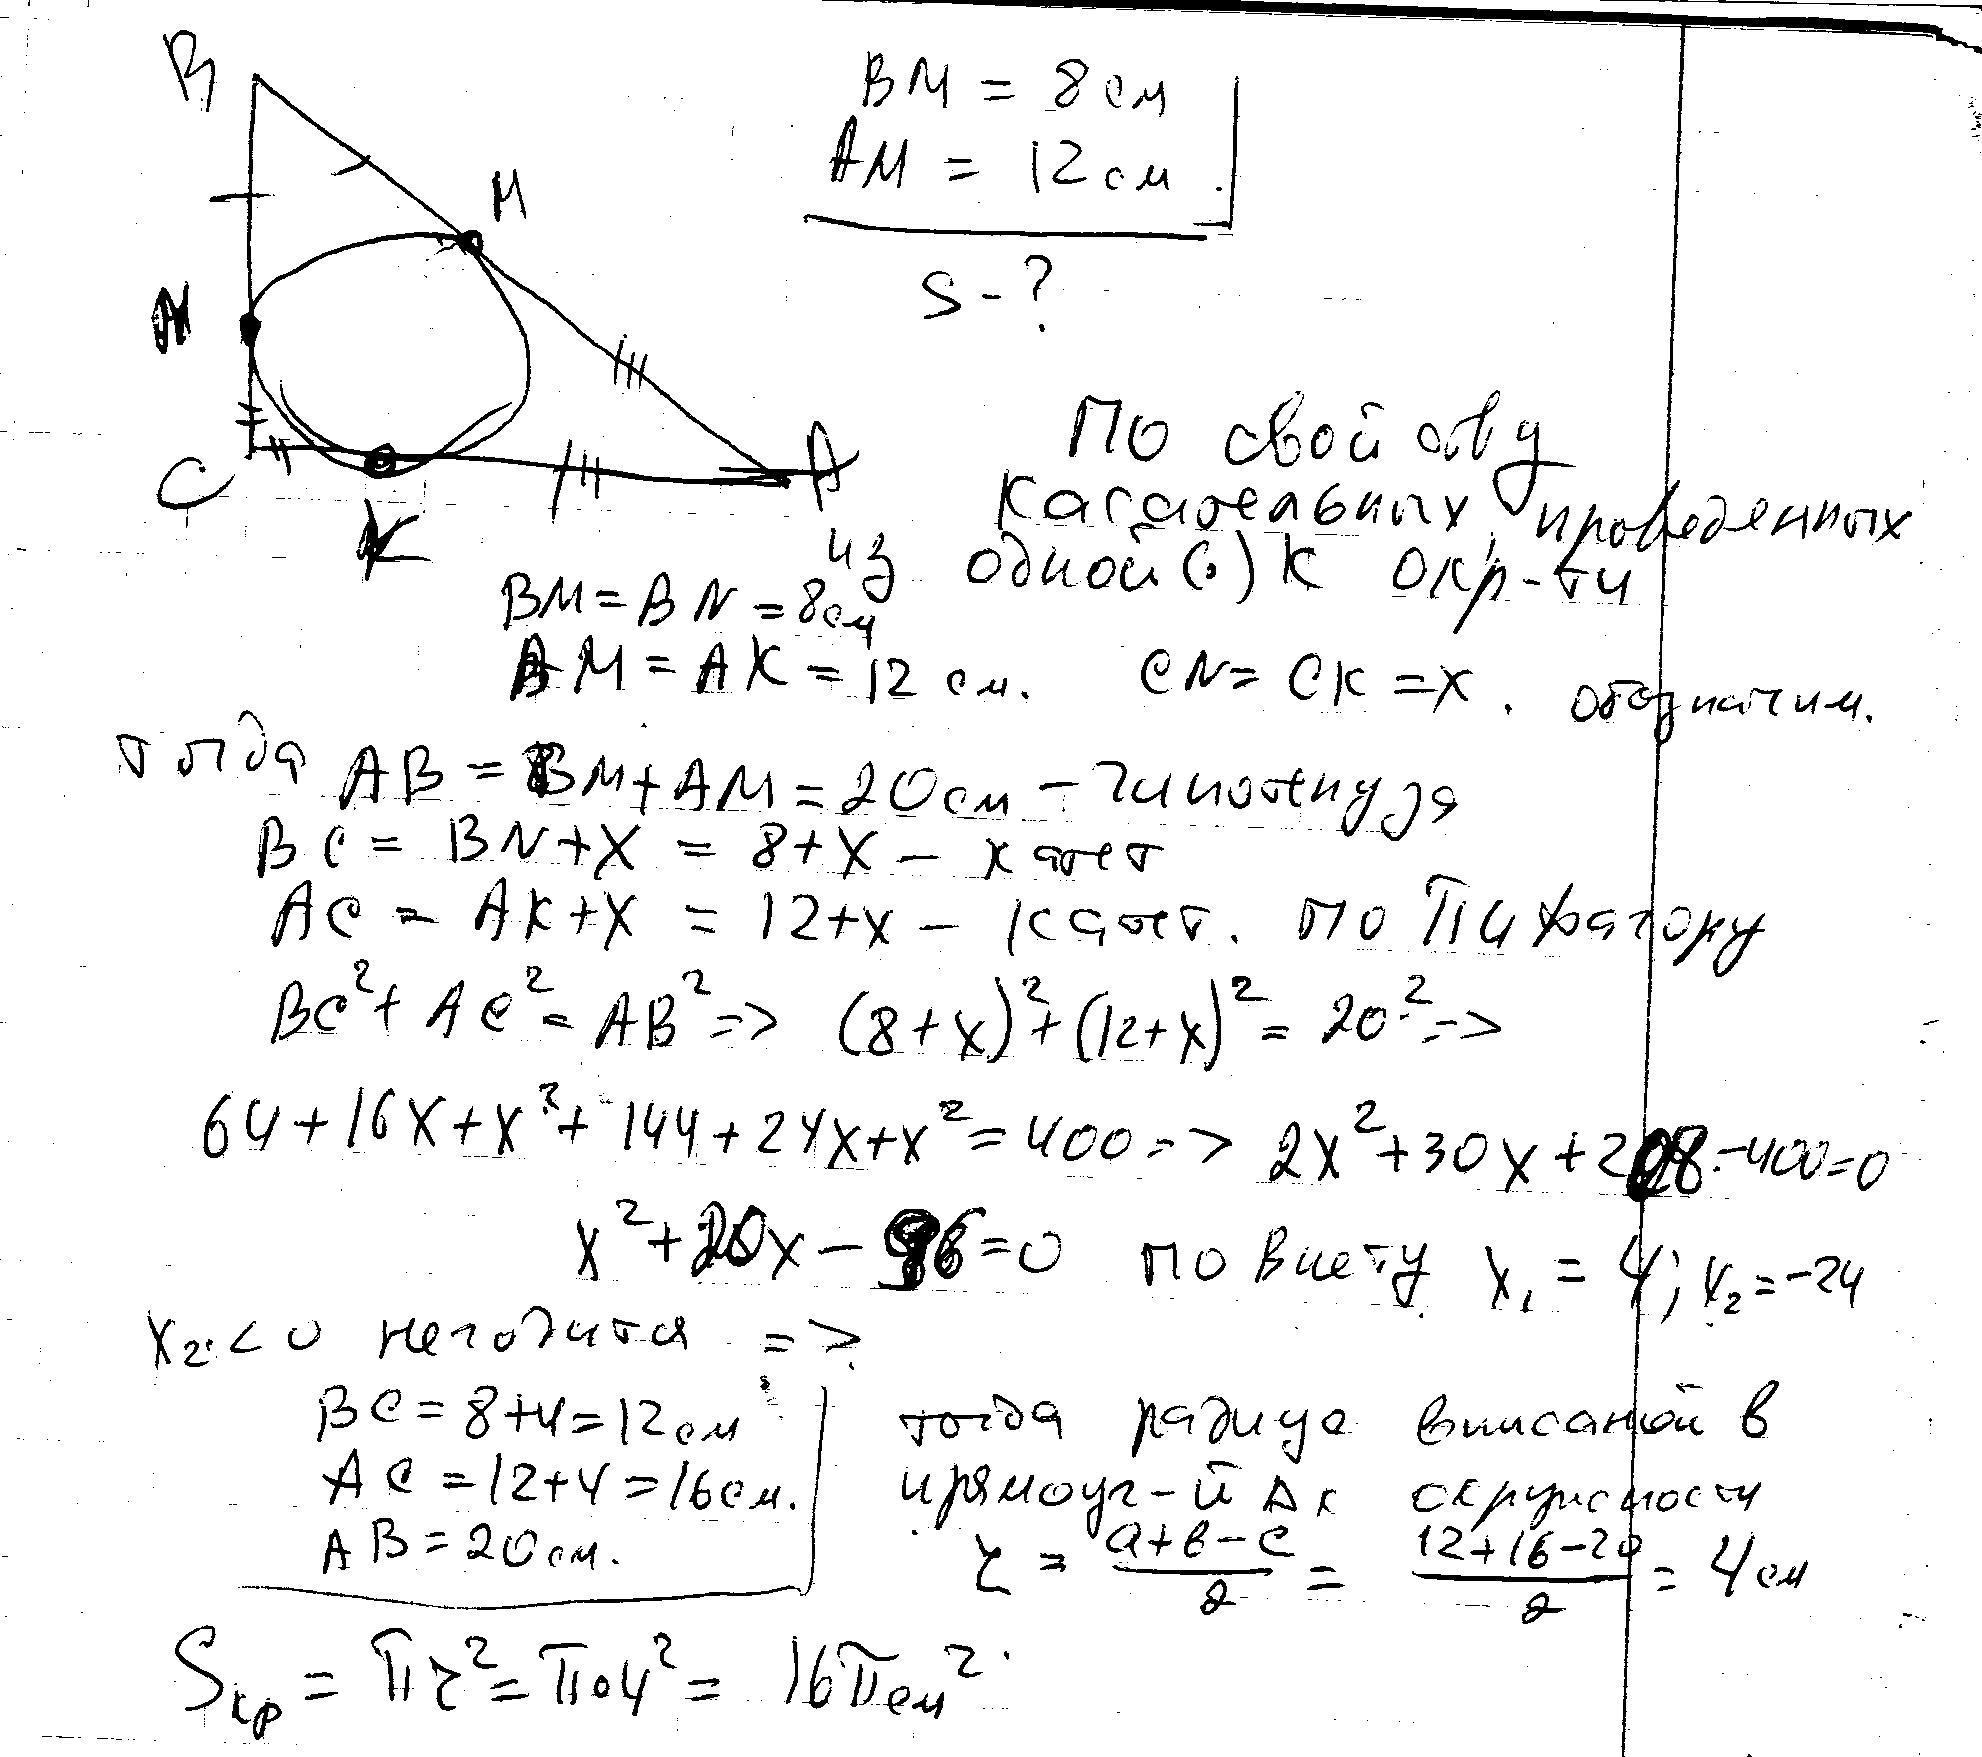 B
M
N
C
K
A
BM = 8 см
AM = 12 см.
S - ?
По свойству
касательных, проведенных
из одной (·) к окр-ти
BM = BN = 8см
AM = AK = 12 см. CN = CK = x. обозначим.
тогда AB = BM + AM = 20см - гипотенуза
BC = BN + X = 8 + X - катет
AC = AK + X = 12 + x - катет. по Пифагору
BC² + AC² = AB² => (8 + x)² + (12 + x)² = 20² =>
64 + 16x + x² + 144 + 24x + x² = 400 => 2x² + 30x + 208 - 400 = 0
x² + 20x - 96 = 0 по Виету x₁ = 4; x₂ = -24
x₂ < 0 негодится =>
BC = 8 + 4 = 12 см
AC = 12 + 4 = 16 см.
AB = 20 см.
тогда радиус вписаной в
прямоуг-й Δк окружности
r = (a + b - c)/2 = (12 + 16 - 20)/2 = 4 см
Sкр = πr² = π·4² = 16π см².